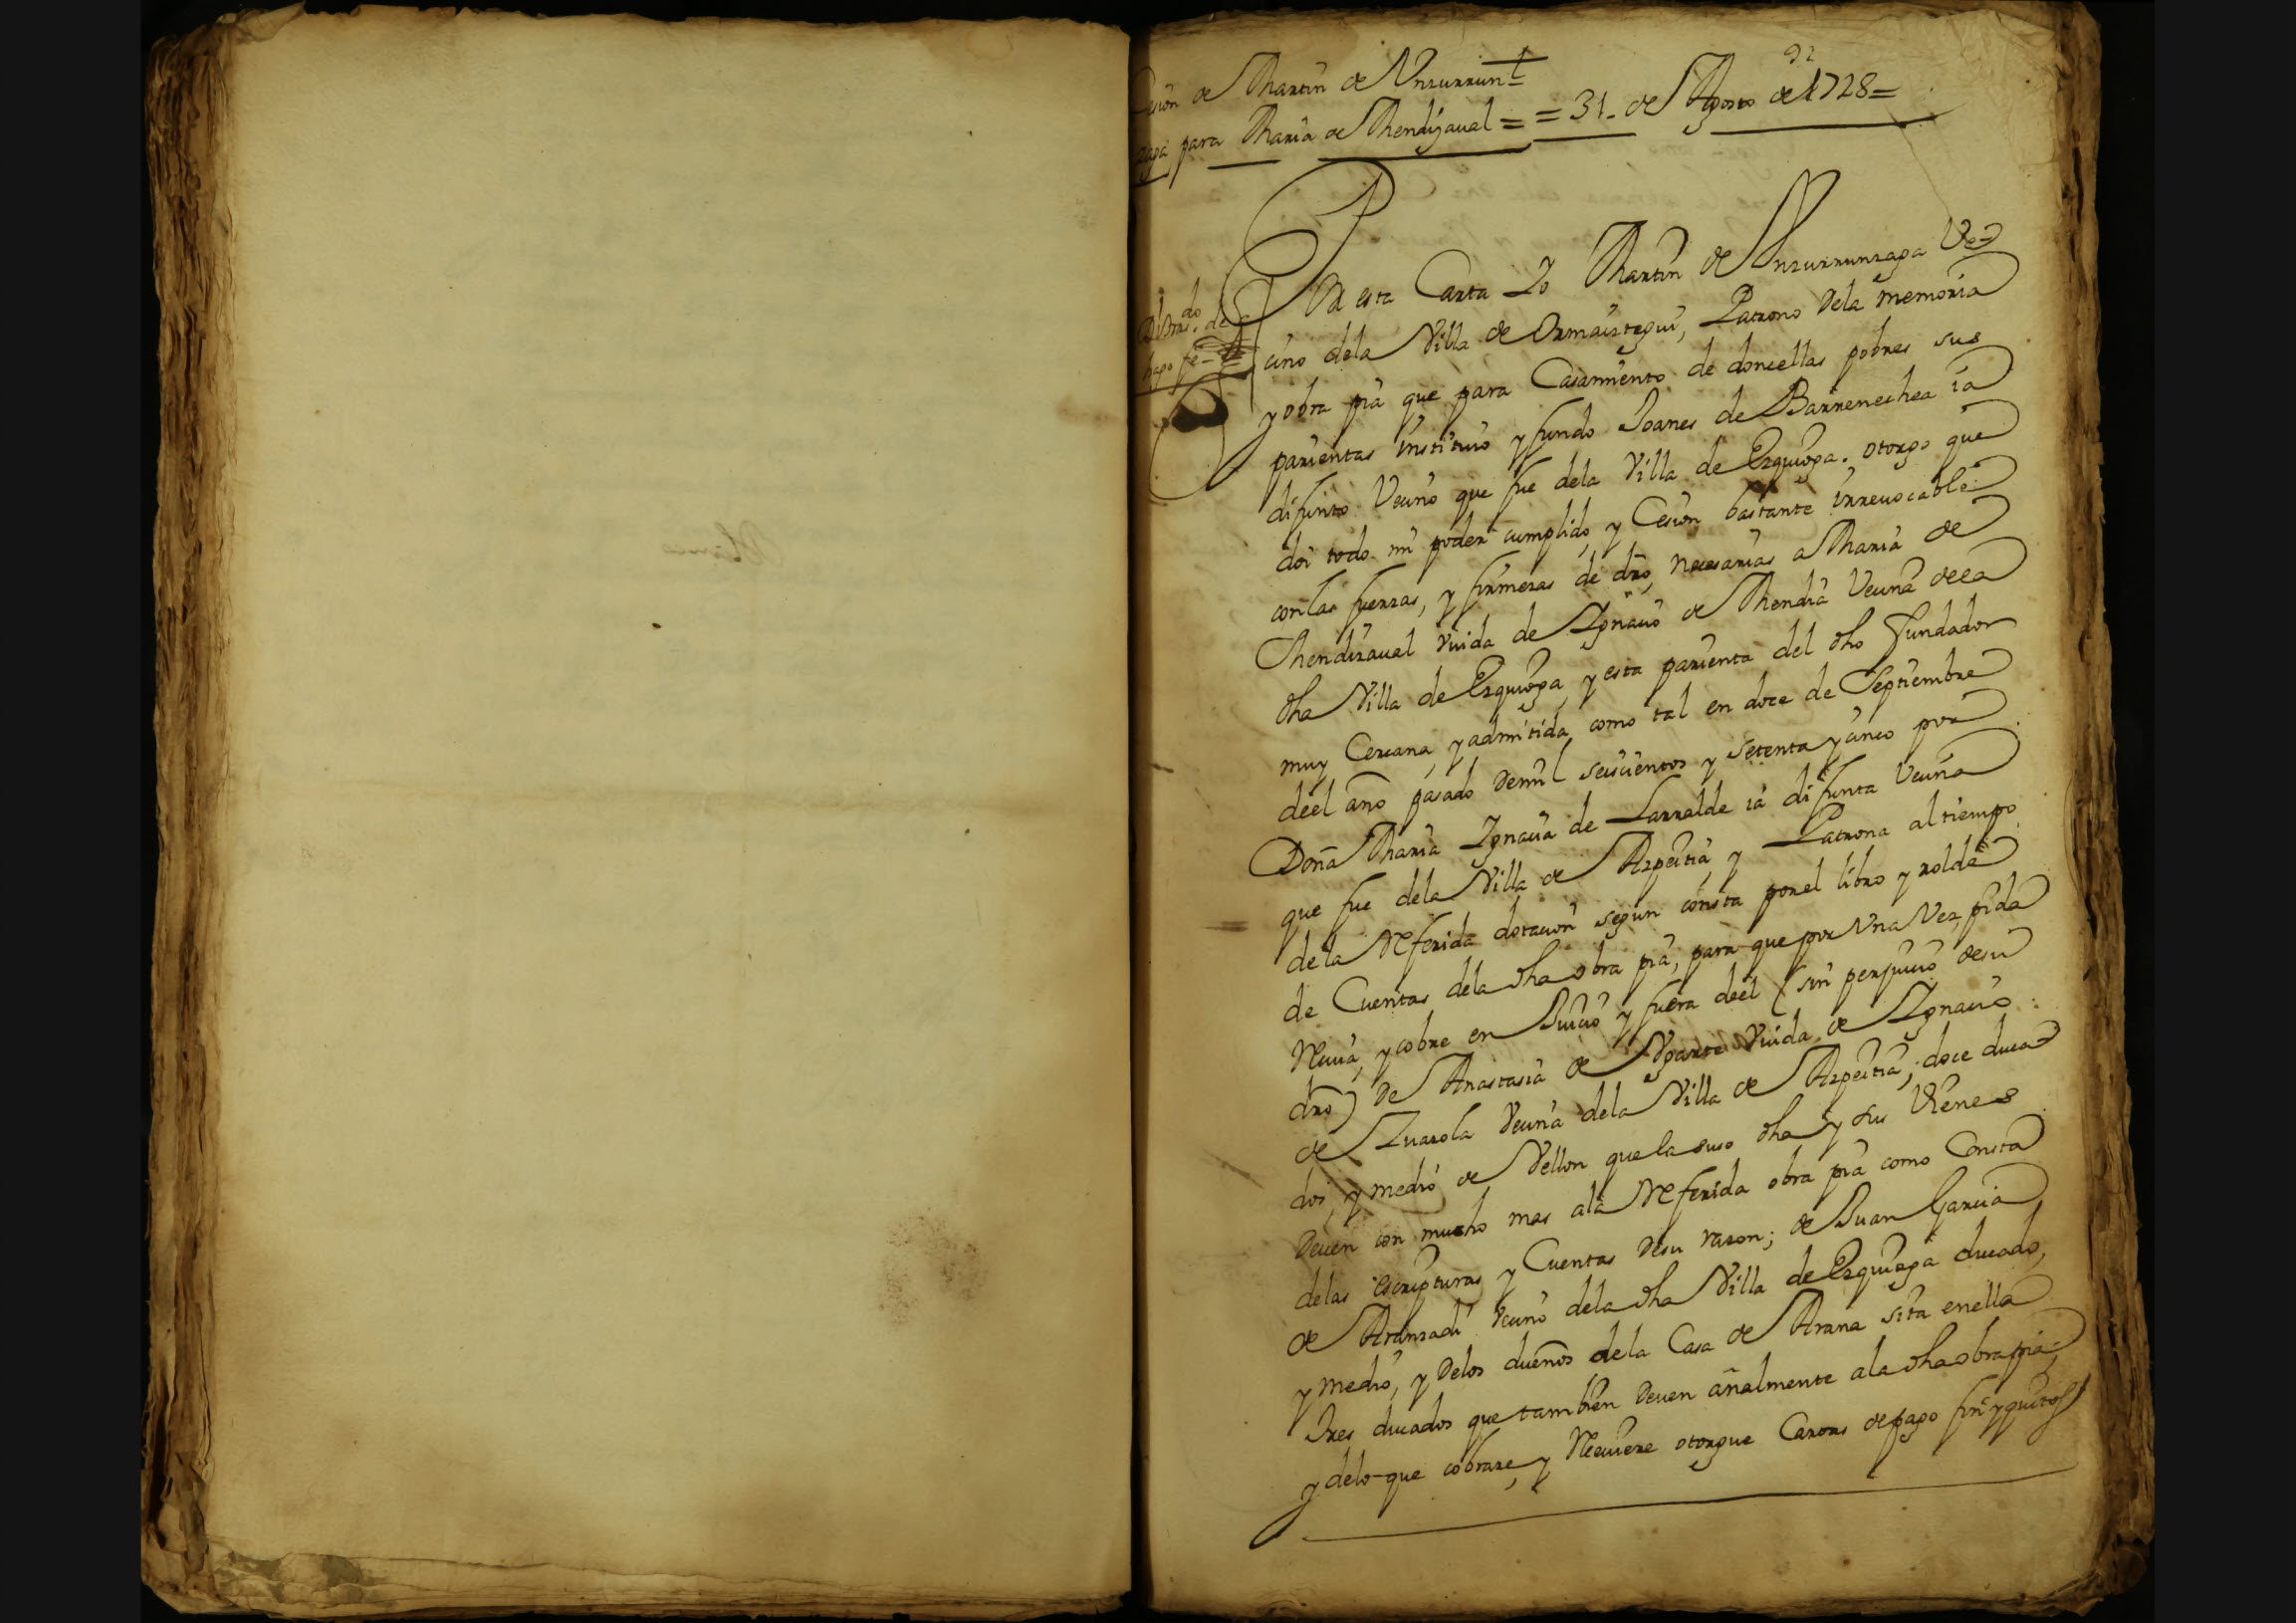 92
Cesion de Martin de Vnzurrun
zaga para Maria de Mendizaual = = 31. de Agosto de 1728 =
Por esta Carta Yo Martin de Vnzurrunzaga Ve-
cino dela Villa de Ormaiztegui, Patrono dela memoria
y obra pia que para Casamiento de doncellas pobres sus
parientas instituio y fundo Joanes de Barrenechea ia
difunto Vecino que fue dela Villa de Ezquioga. otorgo que
doi todo mi poder cumplido, y Cesion bastante irreuocable
con las fuerzas, y firmezas de dro, necesarias a Maria de
Mendizaual viuda de Ignacio de Mendia Vecina dela
dha Villa de Ezquioga, y esta parienta del dho Fundador
muy Cercana, y admitida como tal en doce de Septiembre
deel año pasado demil seiscientos y setenta y cinco por
Doña Maria Ignacia de Larralde ia difunta Vecina
que fue dela Villa de Azpeitia, y Patrona al tiempo
de la Referida dotacion segun consta por el libro y rolde
de Cuentas dela dha obra pia, para que por Vna Vez, pida
Reciua, y cobre en Juicio y fuera deel (sin perjuicio desu
dro) de Anastasia de Vgarte Viuda de Ignacio
de Zuazola Vecina dela Villa de Azpeitia, doce duca
dos, y medio de Vellon que la suso dha y sus Vienes
Deuen con mucho mas ala Referida obra pia como Consta
delas escripturas y Cuentas desu razon; de Juan Garcia
de Aranzadi Vecino dela dha Villa de Ezquioga ducado,
y medio, y Delos dueños dela Casa de Arana sita enella
Tres ducados que tambien Deuen añalmente ala dha obra pia,
y delo que cobrare, y Reciuiere otorgue Cartas de pago finiquitos